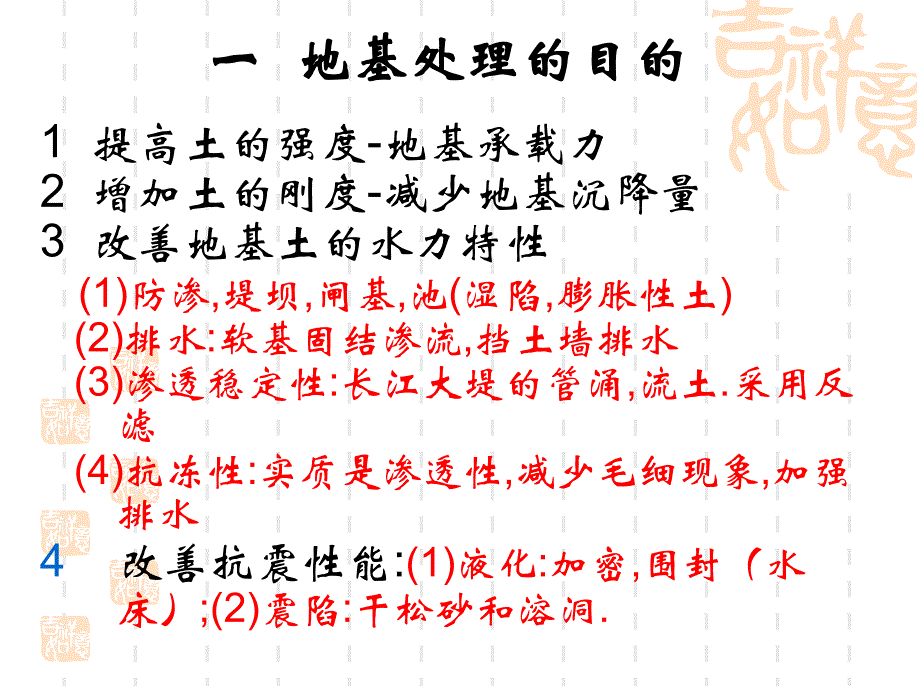 一 地基处理的目的
吉祥如意
1 提高土的强度-地基承载力
2 增加土的刚度-减少地基沉降量
3 改善地基土的水力特性
(1)防渗,堤坝,闸基,池(湿陷,膨胀性土)
(2)排水:软基固结渗流,挡土墙排水
(3)渗透稳定性:长江大堤的管涌,流土.采用反
滤
(4)抗冻性:实质是渗透性,减少毛细现象,加强
排水
4 改善抗震性能:(1)液化:加密,围封（水
床）;(2)震陷:干松砂和溶洞.
吉祥如意
吉祥如意
吉祥如意
吉祥如意
吉祥如意
吉祥如意